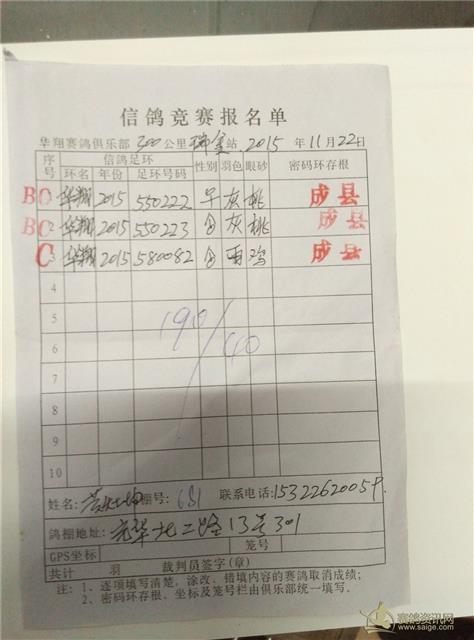 信鸽竞赛报名单
华翔赛鸽俱乐部 300 公里 瑞金 站 2015 年 11 月 22 日
序号 信鸽足环 性别 羽色 眼砂 密码环存根
环名 年份 足环号码
BC 华翔 2015 550222 灰 桃 成县
BC 2 华翔 2015 550223 灰 桃 成县
C 3 华翔 2015 580082 雨 鸡 成县
4
5
6
7
8
9
10
190/40
姓名: 棚号: 681 联系电话: 15322620059
鸽棚地址: 北二路13号301
GPS坐标 笼号
共计 羽 裁判员签字(章)
注: 1、逐项填写清楚, 涂改、错填内容的赛鸽取消成绩;
2、密码环存根、坐标及笼号栏由俱乐部统一填写.
赛鸽资讯网
www.saige.com